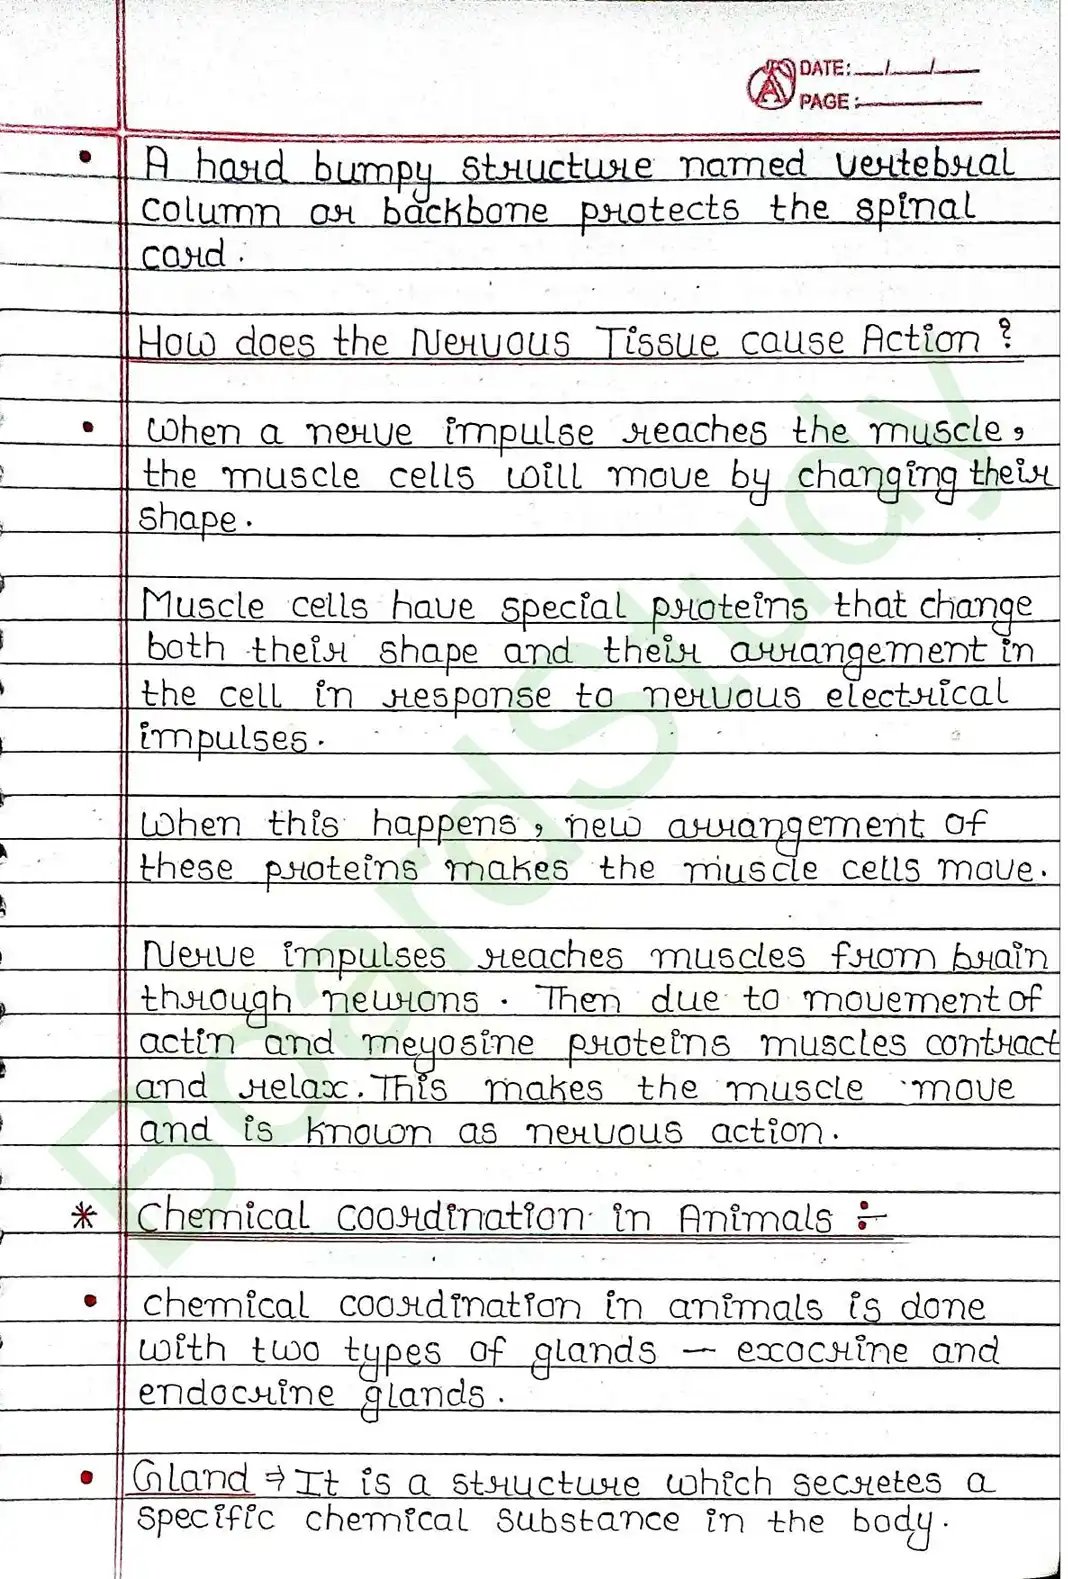 DATE: __/__/__
PAGE:
• A hard bumpy structure named vertebral
column or backbone protects the spinal
cord.
How does the Nervous Tissue cause Action?
• When a nerve impulse reaches the muscle,
the muscle cells will move by changing their
shape.
Muscle cells have special proteins that change
both their shape and their arrangement in
the cell in response to nervous electrical
impulses.
When this happens, new arrangement of
these proteins makes the muscle cells move.
Nerve impulses reaches muscles from brain
through neurons. Then due to movement of
actin and meyosine proteins muscles contract
and relax. This makes the muscle move
and is known as nervous action.
* Chemical coordination in Animals :-
• chemical coordination in animals is done
with two types of glands — exocrine and
endocrine glands.
• Gland ⇒ It is a structure which secretes a
specific chemical substance in the body.
BoardStudy